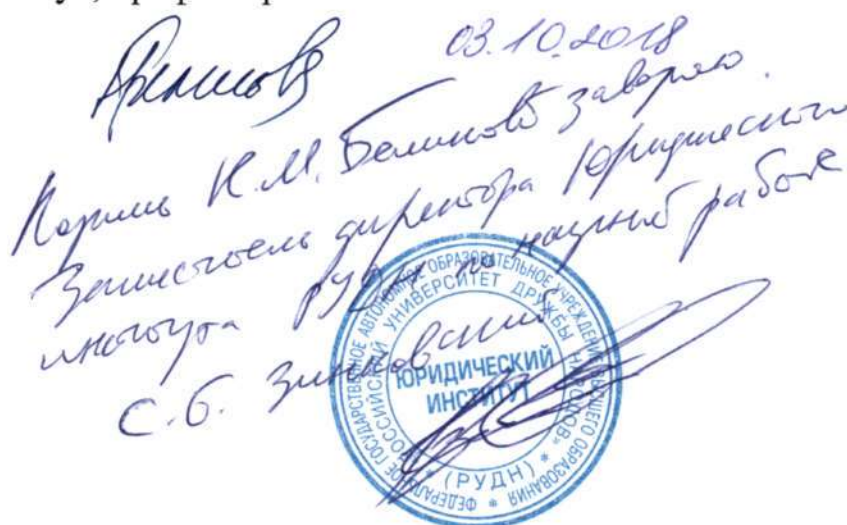 03.10.2018
Подпись К.М. Беликовой заверяю.
Заместитель директора Юридического
института РУДН по научной работе
С.Б. Зинковский
ФЕДЕРАЛЬНОЕ ГОСУДАРСТВЕННОЕ АВТОНОМНОЕ ОБРАЗОВАТЕЛЬНОЕ УЧРЕЖДЕНИЕ ВЫСШЕГО ОБРАЗОВАНИЯ *
РОССИЙСКИЙ УНИВЕРСИТЕТ ДРУЖБЫ НАРОДОВ»
* (РУДН) *
ЮРИДИЧЕСКИЙ
ИНСТИТУТ